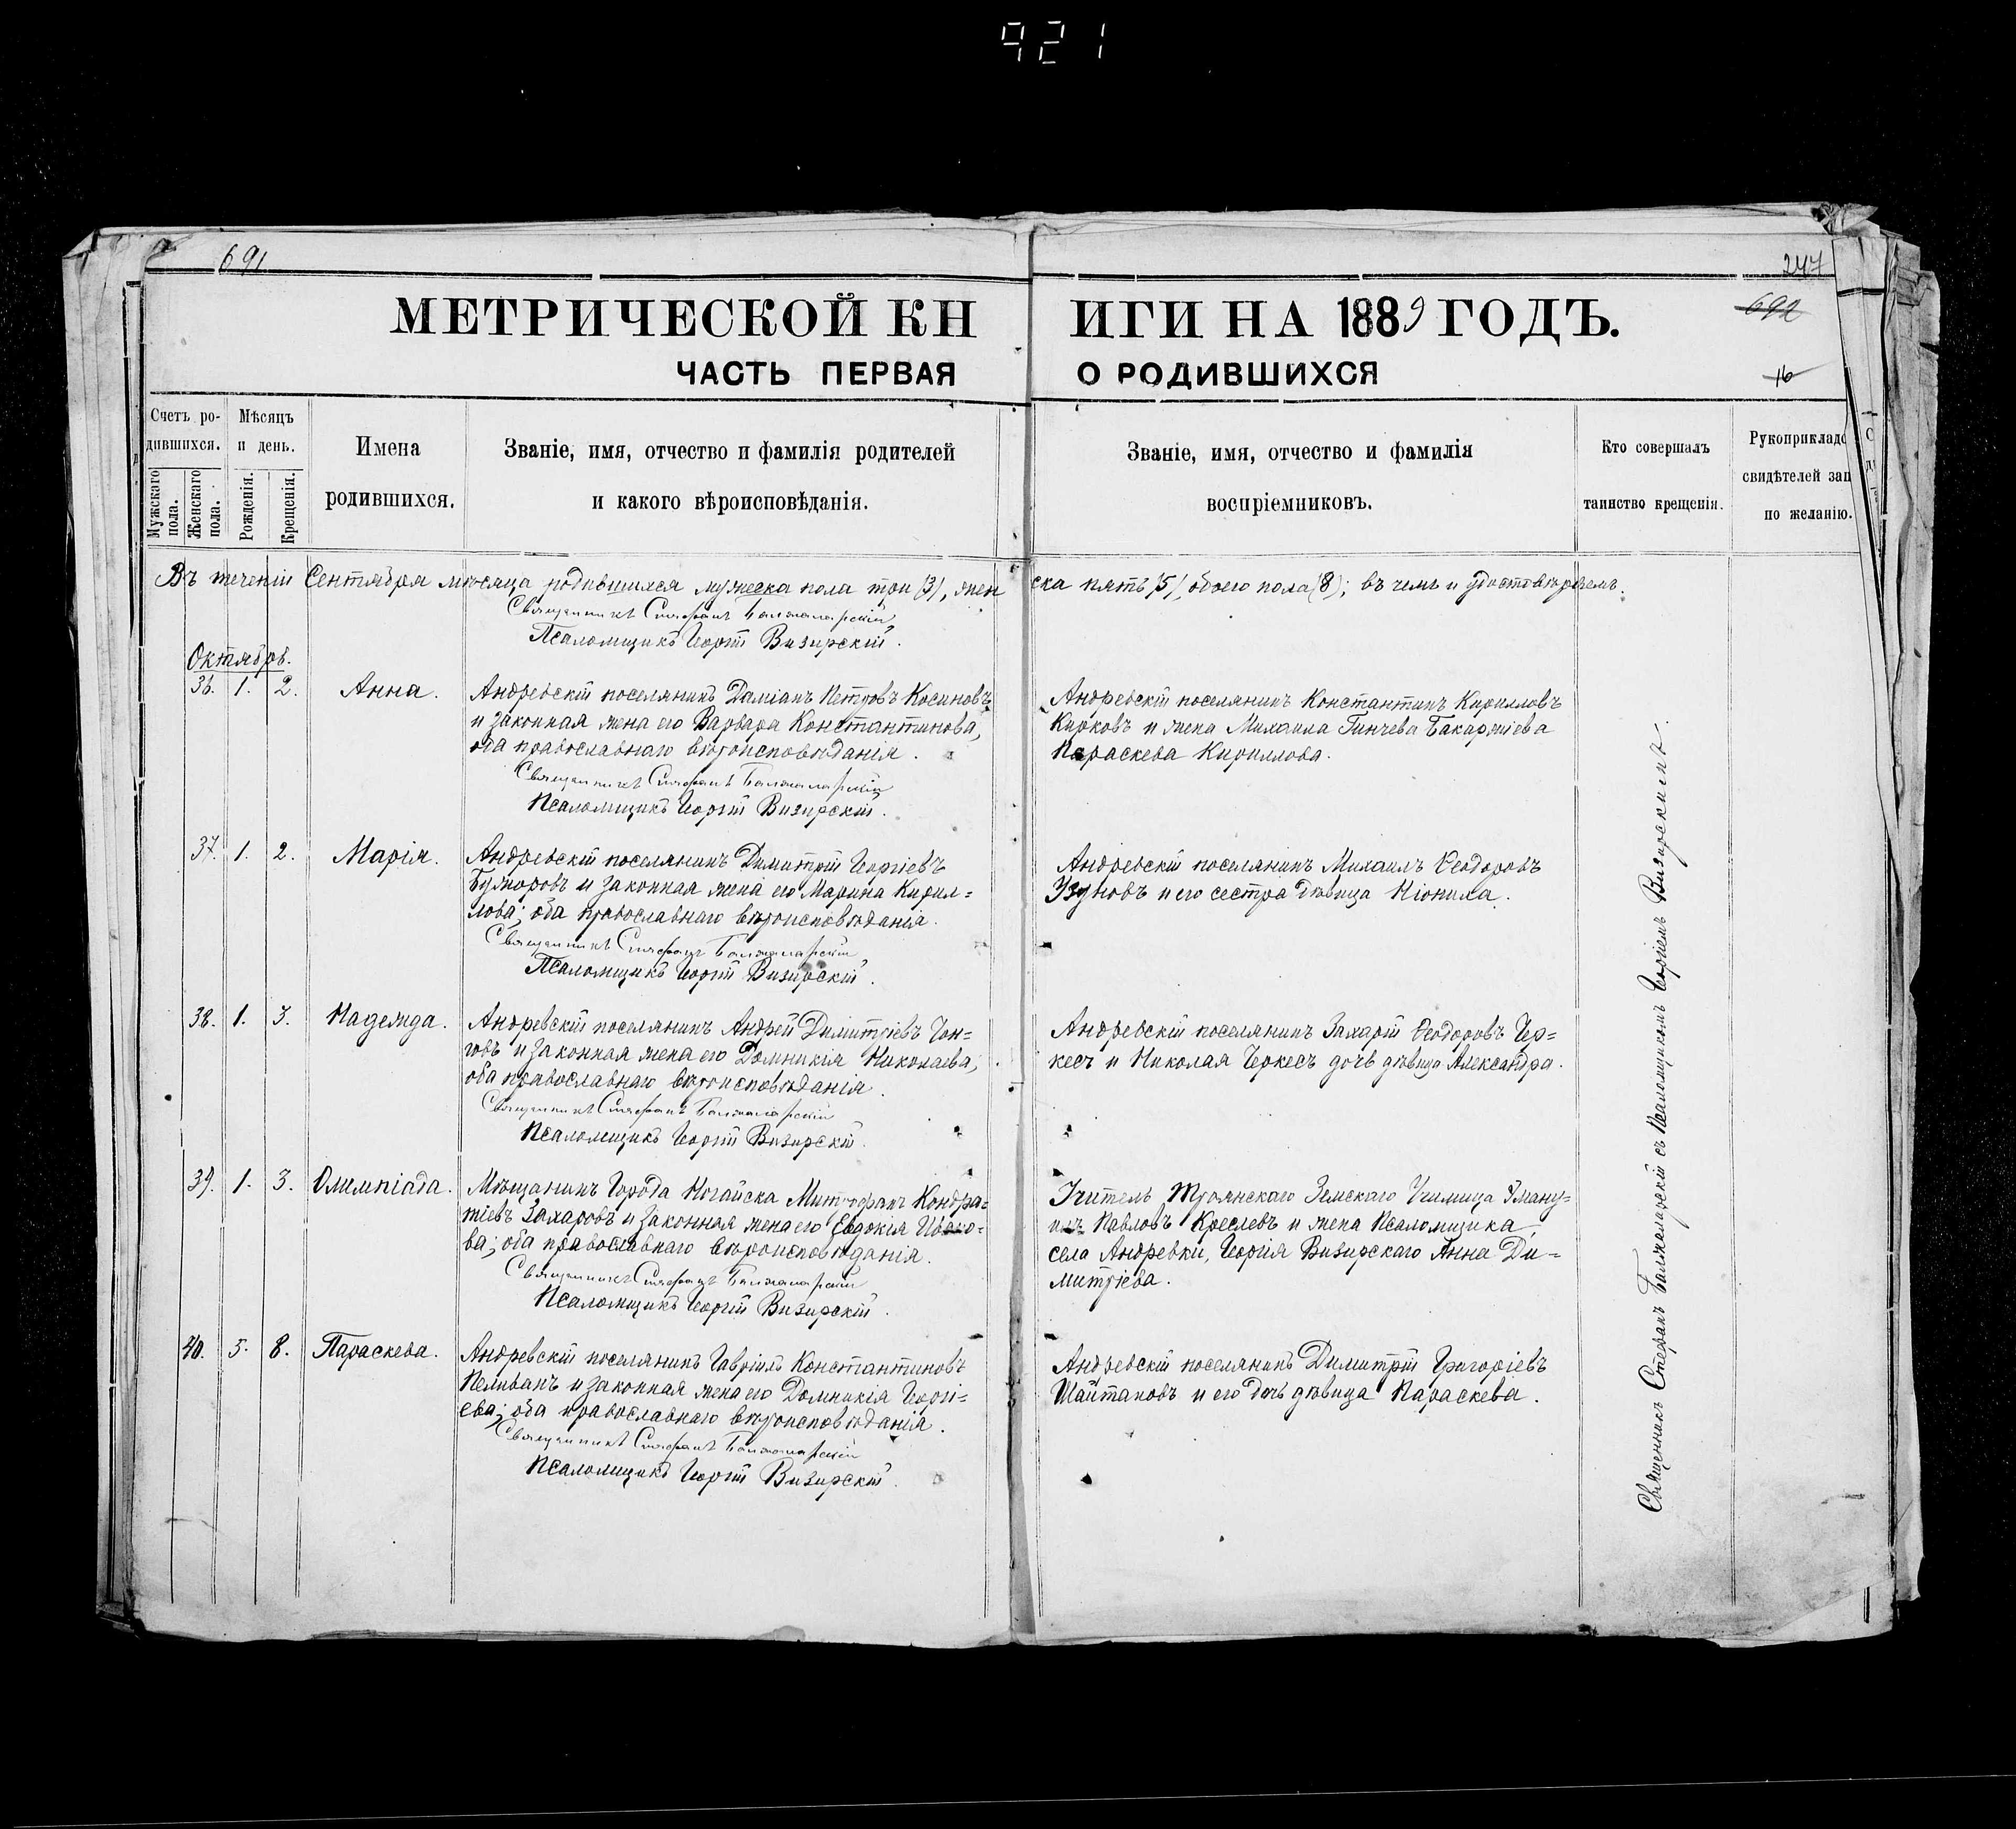 921
691
247
МЕТРИЧЕСКОЙ КН ИГИ НА 1889 ГОДЪ.
692
ЧАСТЬ ПЕРВАЯ О РОДИВШИХСЯ
16
Счетъ родившихся.
Мужскаго пола.
Женскаго пола.
Мѣсяцъ и день.
Рожденія.
Крещенія.
Имена родившихся.
Званіе, имя, отчество и фамилія родителей
и какого вѣроисповѣданія.
Званіе, имя, отчество и фамилія
воспріемниковъ.
Кто совершалъ
таинство крещенія.
Рукоприкладс
свидѣтелей зап
по желанію.
Въ теченіи Сентября мѣсяца родившихся мужеска пола три (3), жен ска пять (5), обоего пола (8); въ чемъ и удостовѣряемъ.
Священникъ Стефанъ Балжаларскій
Псаломщикъ Георгій Визирскій.
Октябрь.
36. 1. 2. Анна.
Андревскій поселянинъ Даміанъ Петровъ Косиновъ
и законная жена его Варвара Константинова,
оба православнаго вѣроисповѣданія.
Священникъ Стефанъ Балжаларскій
Псаломщикъ Георгій Визирскій.
Андревскій поселянинъ Константинъ Кирилловъ
Кирковъ и жена Михаила Гинчева Бакаржіева
Параскева Кириллова.
37. 1. 2. Марія.
Андревскій поселянинъ Димитрій Георгіевъ
и законная жена его Марина Кирил=
лова; оба православнаго вѣроисповѣданія.
Священникъ Стефанъ Балжаларскій
Псаломщикъ Георгій Визирскій.
Андревскій поселянинъ Михаилъ Ѳеодоровъ
Узуновъ и его сестра дѣвица Неонила.
38. 1. 3. Надежда.
Андревскій поселянинъ Андрей Димитріевъ Гон=
говъ и законная жена его Домникія Николаева,
оба православнаго вѣроисповѣданія.
Священникъ Стефанъ Балжаларскій
Псаломщикъ Георгій Визирскій.
Андревскій поселянинъ Захарій Ѳеодоровъ Чер=
кесъ и Николая Черкесъ дочь дѣвица Александра.
39. 1. 3. Олимпіада.
Мѣщанинъ Города Ногайска Митрофанъ Кондра=
тіевъ Захаровъ и законная жена его Евдокія Ивано=
ва; оба православнаго вѣроисповѣданія.
Священникъ Стефанъ Балжаларскій
Псаломщикъ Георгій Визирскій.
Учитель Троянскаго Земскаго Училища Эману=
илъ Павловъ Креслевъ и жена Псаломщика
села Андревки, Георгія Визирскаго Анна Ди=
митріева.
40. 5. 8. Параскева.
Андревскій поселянинъ Гавріилъ Константиновъ
Пеливанъ и законная жена его Домникія Георгі=
ева; оба православнаго вѣроисповѣданія.
Священникъ Стефанъ Балжаларскій
Псаломщикъ Георгій Визирскій.
Андревскій поселянинъ Димитрій Григоріевъ
Шайтановъ и его дочь дѣвица Параскева.
Священникъ Стефанъ Балжаларскій съ Псаломщикомъ Георгіемъ Визирскимъ.